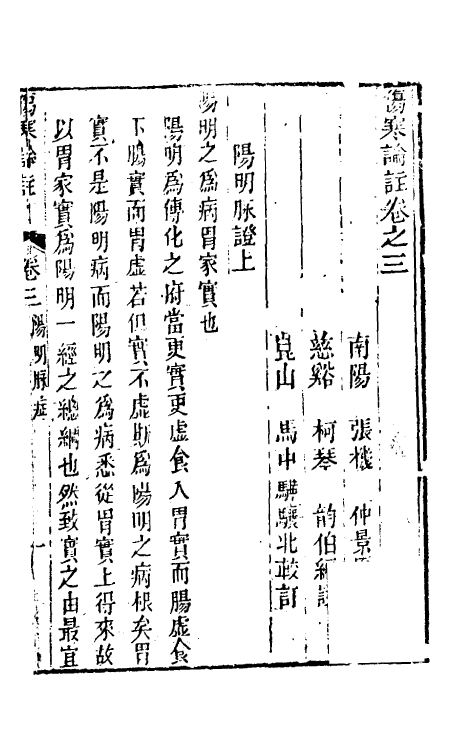 傷寒論註卷之三
南陽 張機 仲景
慈谿 柯琴 韵伯
崑山 馬中驊驤北較訂
陽明脉證上
陽明之爲病胃家實也
陽明爲傳化之府當更實更虛食入胃實而腸虛食
下腸實而胃虛若但實不虛斯爲陽明之病根矣胃
實不是陽明病而陽明之爲病悉從胃實上得來故
以胃家實爲陽明一經之總綱也然致實之由最宜
傷寒論註 卷三 陽明脉症 一